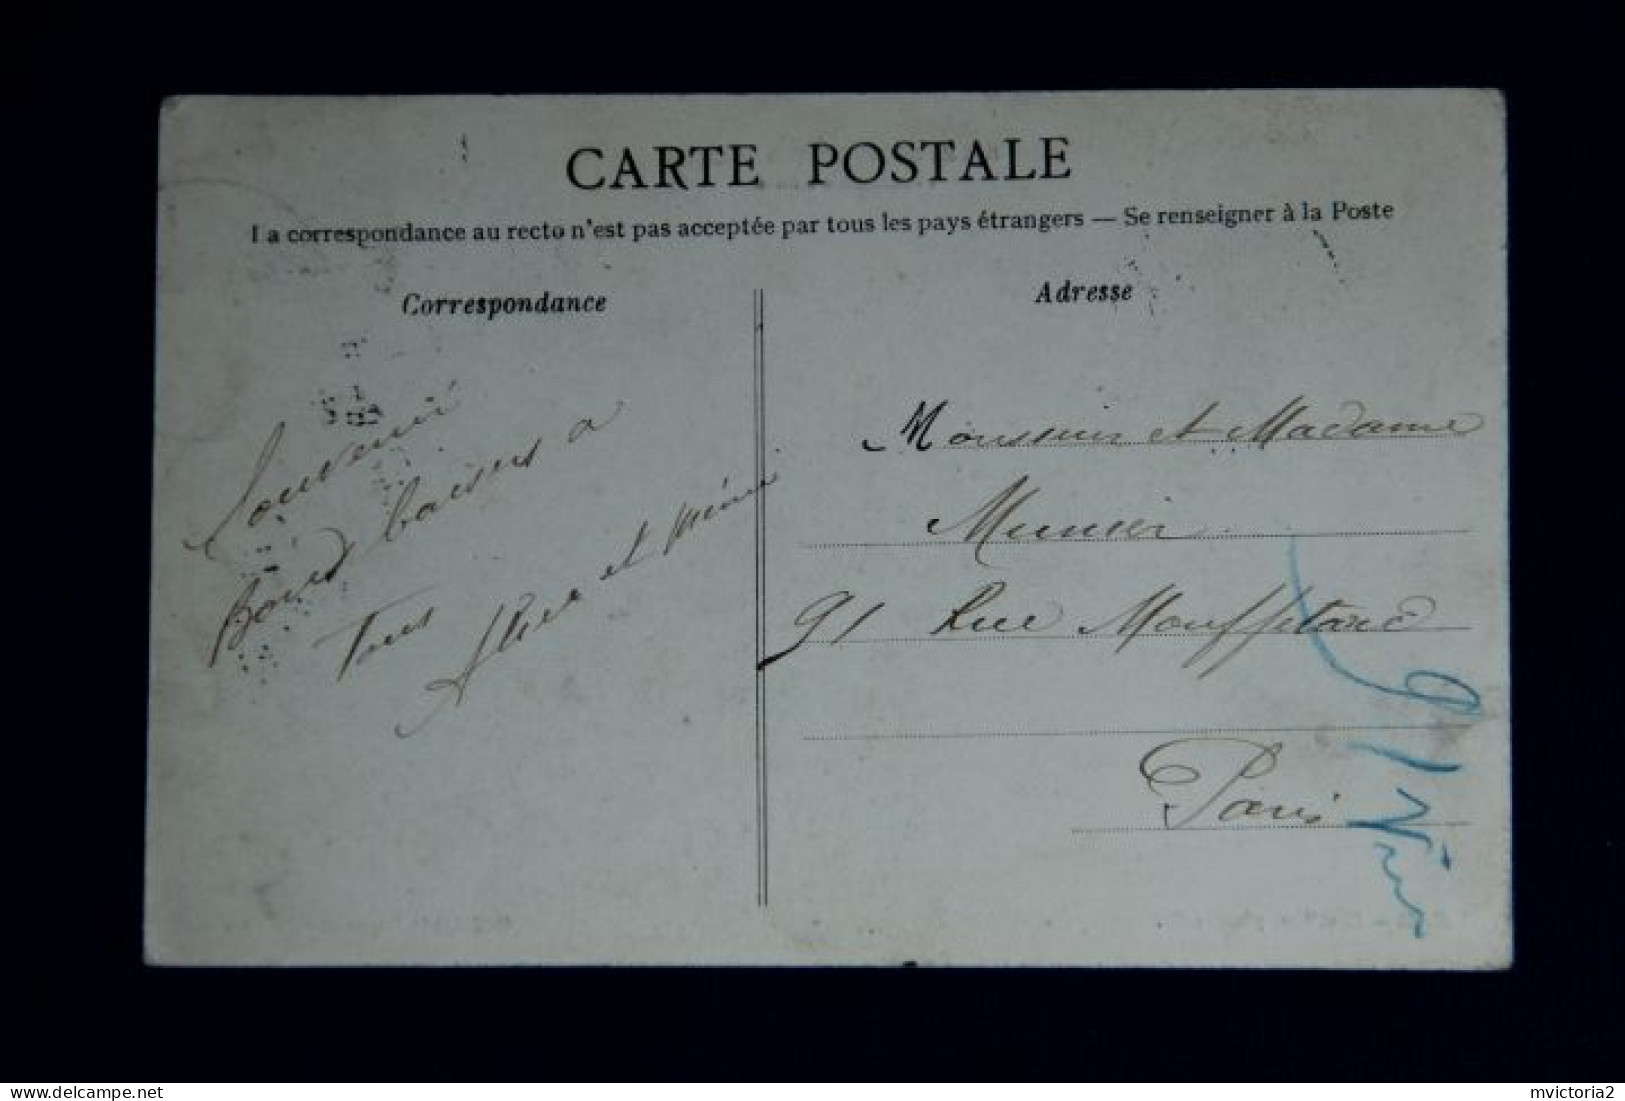 CARTE POSTALE
La correspondance au recto n'est pas acceptée par tous les pays étrangers — Se renseigner à la Poste
Correspondance
Adresse
Souvenir
Bons baisers a
Tous
et mémé
Monsieur et Madame
Munier
91 Rue Mouffetard
Paris
91
mvictoria2